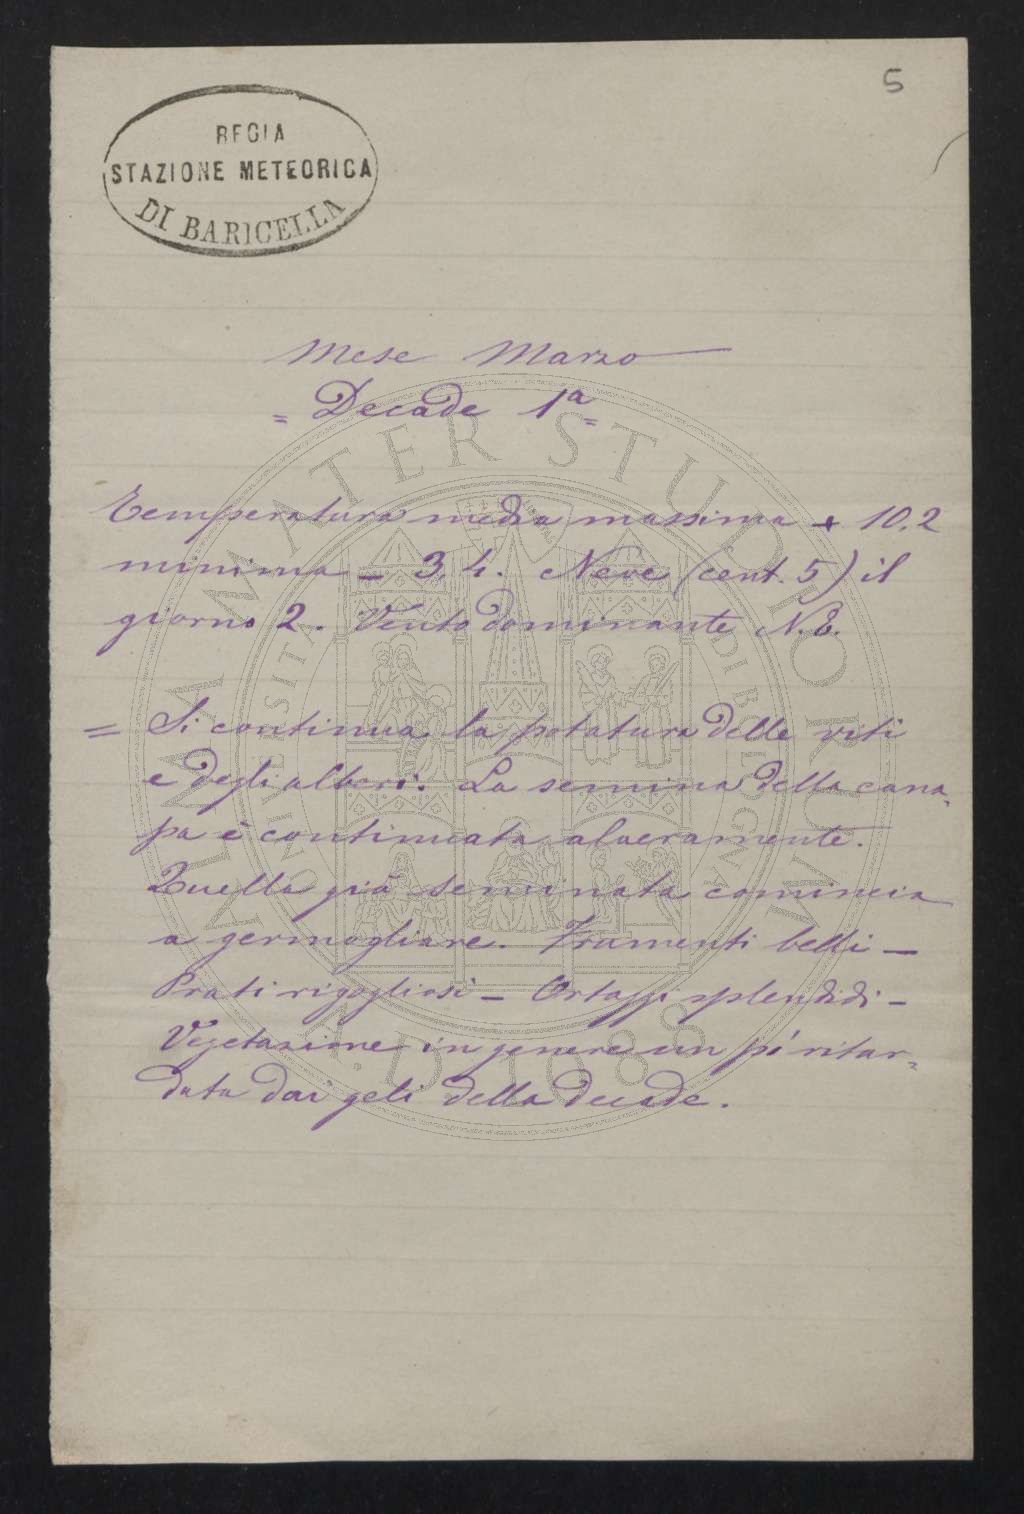 5
REGIA
STAZIONE METEORICA
DI BARICELLA
Mese Marzo
= Decade 1ª =
Temperatura media massima + 10.2
minima - 3.4. Neve (cent. 5) il
giorno 2. Vento dominante N.E.
= Si continua la potatura delle viti
e degli alberi. La semina della cana=
pa è continuata alacramente.
Quella già seminata comincia
a germogliare. Frumenti belli -
Prati rigogliosi - Ortaggi splendidi -
Vegetazione in genere un pò ritar=
data dai geli della decade.
ALMA MATER STUDIORUM
A.D. 1088